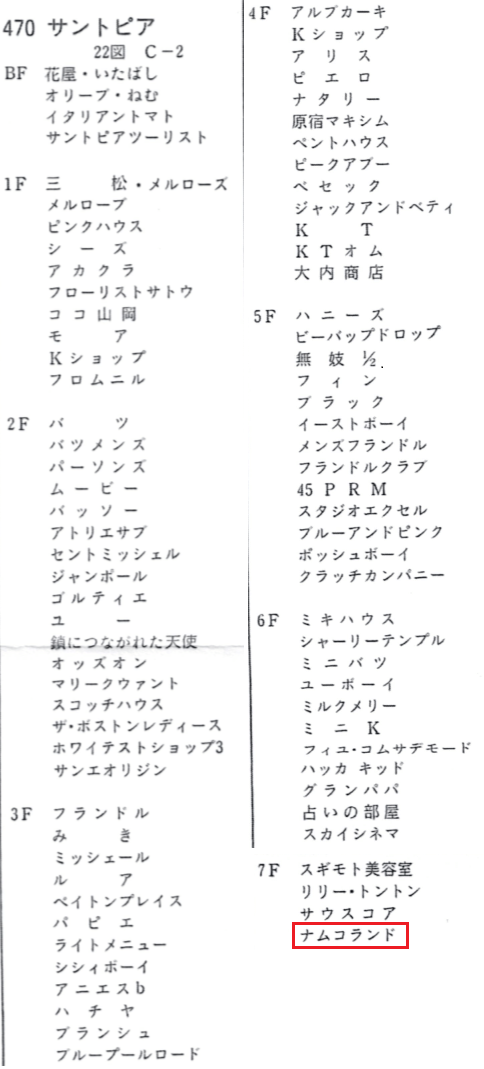 470 サントピア
22図 C-2
BF 花屋・いたばし
オリーブ・ねむ
イタリアントマト
サントピアツーリスト
1F 三松・メルローズ
メルローブ
ピンクハウス
シーズ
アカクラ
フローリストサトウ
ココ山岡
モア
Kショップ
フロムニル
2F バツ
バツメンズ
パーソンズ
ムービー
バッソー
アトリエサブ
セントミッシェル
ジャンポール
ゴルティエ
ユー
鎖につながれた天使
オッズオン
マリークヮント
スコッチハウス
ザ・ボストンレディース
ホワイテストショップ3
サンエオリジン
3F フランドル
みき
ミッシェール
ルア
ペイトンプレイス
パピエ
ライトメニュー
シシィボーイ
アニエスb
ハチヤ
ブランシュ
ブループールロード
4F アルブカーキ
Kショップ
アリス
ピエロ
ナタリー
原宿マキシム
ペントハウス
ピークアブー
ベセック
ジャックアンドベティ
KT
KTオム
大内商店
5F ハニーズ
ビーバップドロップ
無妓 ½
フィン
ブラック
イーストボーイ
メンズフランドル
フランドルクラブ
45 PRM
スタジオエクセル
ブルーアンドピンク
ボッシュボーイ
クラッチカンパニー
6F ミキハウス
シャーリーテンプル
ミニバツ
ユーボーイ
ミルクメリー
ミニK
フィユ・コムサデモード
ハッカ キッド
グランパパ
占いの部屋
スカイシネマ
7F スギモト美容室
リリー・トントン
サウスコア
ナムコランド